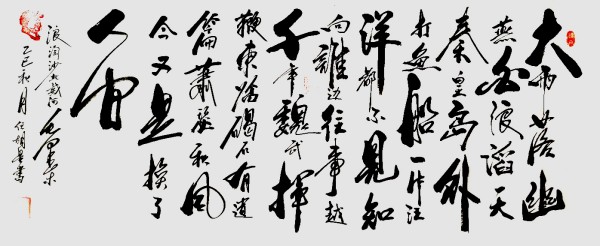 大雨落幽
燕白浪滔天
秦皇岛外
打鱼船一片汪
洋都不见知
向誰边往事越
千年魏武挥
鞭东临碣石有遗
篇萧瑟秋风
今又是换了
人间
浪淘沙北戴河 毛泽东
乙巳秋月 任